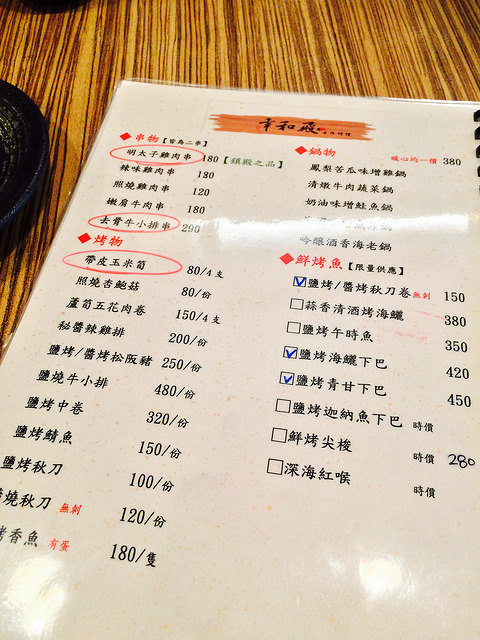 幸和殿 手作料理
◆串物【皆為二串】
明太子雞肉串 180【鎮殿之品】
辣味雞肉串 180
照燒雞肉串 120
嫩肩牛肉串 180
去骨牛小排串 290
◆烤物
帶皮玉米筍 80/4支
照燒杏鮑菇 80/份
蘆筍五花肉卷 150/4支
秘醬辣雞排 200/份
鹽烤/醬烤松阪豬 250/份
鹽燒牛小排 480/份
鹽烤中卷 320/份
鹽烤鯖魚 150/份
鹽烤秋刀 100/份
燒秋刀 無刺 120/份
烤香魚 有蛋 180/隻
◆鍋物 暖心均一價 380
鳳梨苦瓜味增雞鍋
清燉牛肉蔬菜鍋
奶油味增鮭魚鍋
吟釀酒香海老鍋
◆鮮烤魚【限量供應】
☑鹽烤/醬烤秋刀卷 無刺 150
□蒜香清酒烤海鱺 380
□鹽烤午時魚 350
☑鹽烤海鱺下巴 420
☑鹽烤青甘下巴 450
□鹽烤迦納魚下巴 時價
□鮮烤尖梭 時價 280
□深海紅喉 時價